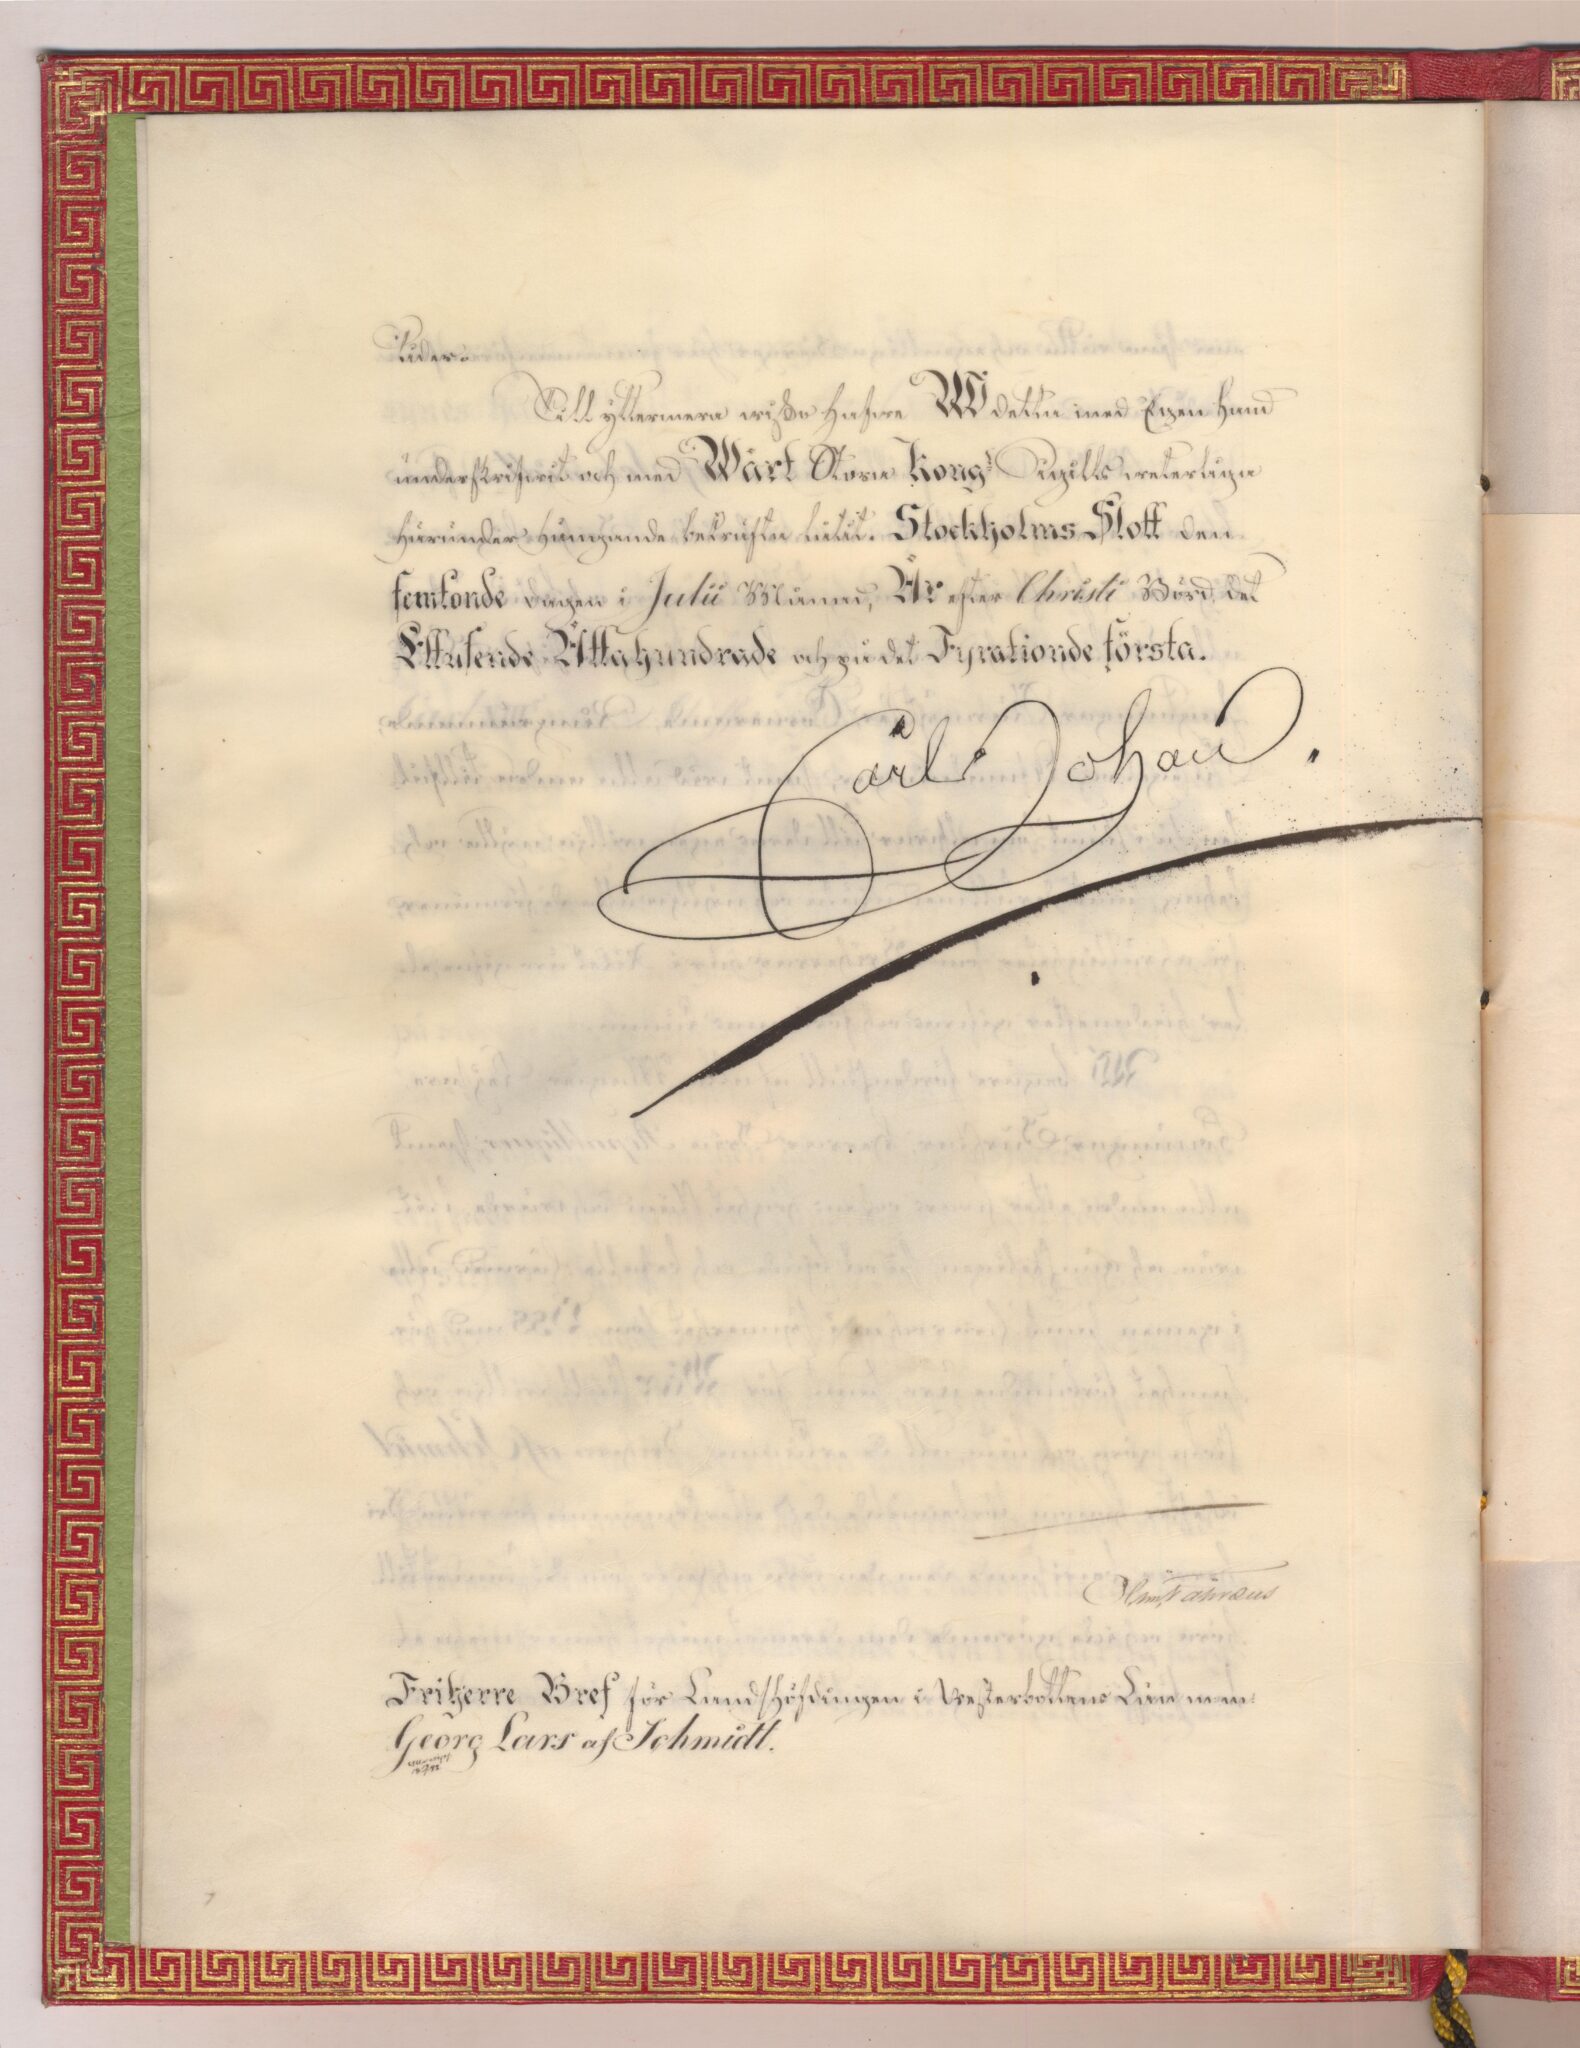 tider.
Till yttermera wisso hafve Wi detta med Egen Hand
underskrifvit och med Wårt Stora Kongl Sigills wetterliga
härunder hängande bekräfta låtit. Stockholms Slott den
femtonde dagen i Julii Månad, År efter Christi Börd det
Ettusende Åttahundrade och på det Fyrationde första.
Carl Johan.
Fåhræus
Friherre Bref för Landshöfdingen i Westerbottens Län m.m.
Georg Lars af Schmidt.